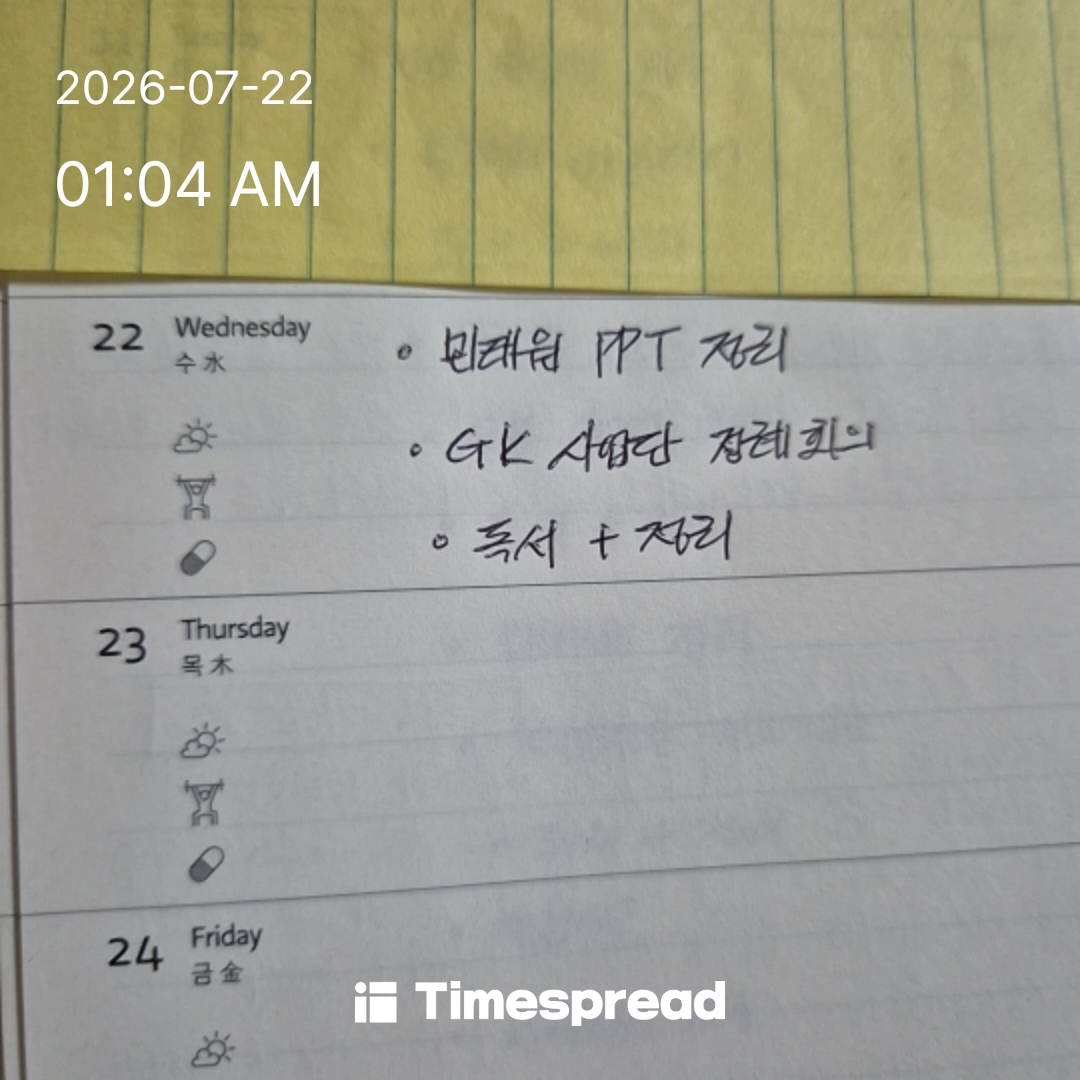 2026-07-22
01:04 AM
22 Wednesday
수 水
• 민태원 PPT 정리
• GK 사업단 정례회의
• 독서 + 정리
23 Thursday
목 木
24 Friday
금 金
Timespread